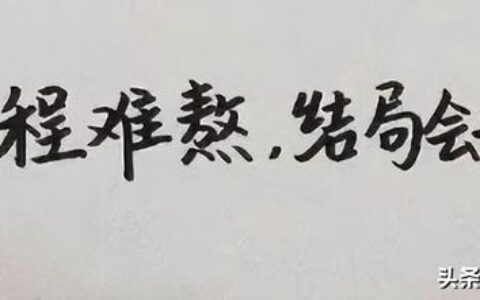 程难熬，结局会
头条